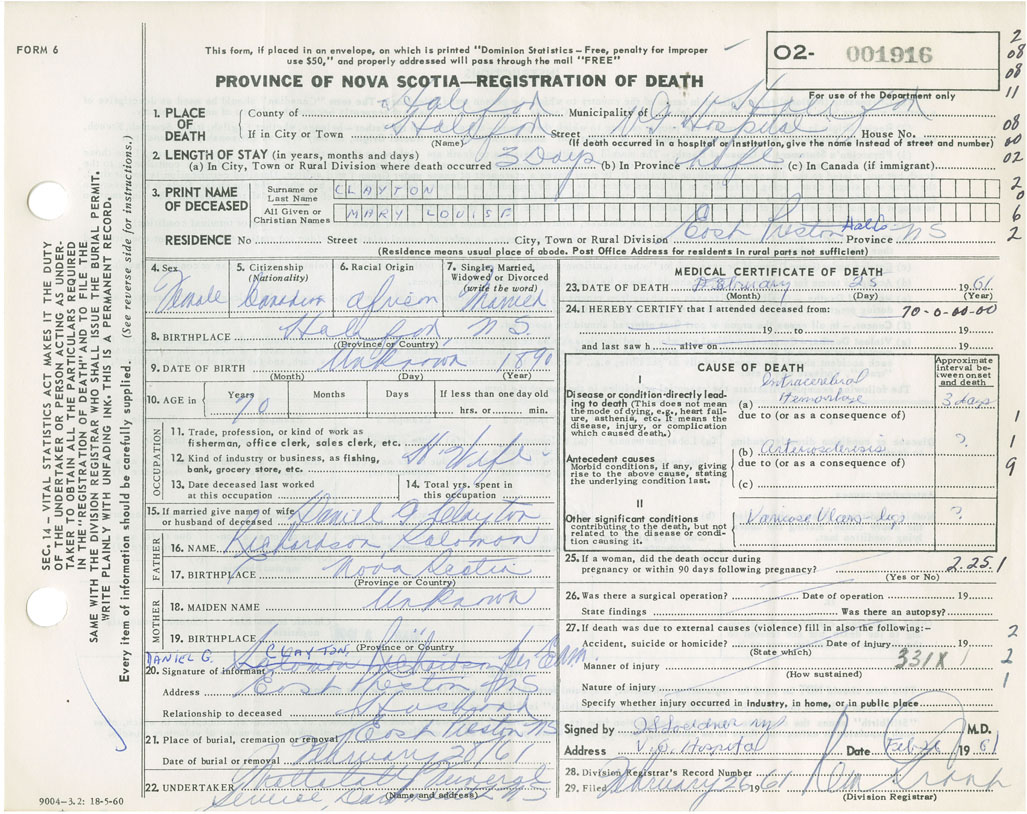 FORM 6
This form, if placed in an envelope, on which is printed "Dominion Statistics – Free, penalty for improper
use $50," and properly addressed will pass through the mail "FREE"
PROVINCE OF NOVA SCOTIA—REGISTRATION OF DEATH
O2- 001916
For use of the Department only
2
08
08
11
08
00
02
2
0
6
2
1. PLACE OF DEATH
County of Halifax Municipality of Halifax
If in City or Town Halifax Street V.G. Hospital House No.
(Name) (If death occurred in a hospital or institution, give the name instead of street and number)
2. LENGTH OF STAY (in years, months and days)
(a) In City, Town or Rural Division where death occurred 3 Days (b) In Province Life (c) In Canada (if immigrant)
3. PRINT NAME OF DECEASED
Surname or Last Name CLAYTON
All Given or Christian Names MARY LOUISE
RESIDENCE No. Street City, Town or Rural Division East Preston Halifx Province NS
(Residence means usual place of abode. Post Office Address for residents in rural parts not sufficient)
4. Sex Female
5. Citizenship (Nationality) Canadian
6. Racial Origin African
7. Single, Married, Widowed or Divorced (write the word) Married
8. BIRTHPLACE Halifax N.S.
(Province or Country)
9. DATE OF BIRTH Unknown 1890
(Month) (Day) (Year)
10. AGE in Years 70 Months Days If less than one day old
hrs. or min.
OCCUPATION
11. Trade, profession, or kind of work as
fisherman, office clerk, sales clerk, etc.
12. Kind of industry or business, as fishing,
bank, grocery store, etc. H-Wife-
13. Date deceased last worked
at this occupation
14. Total yrs. spent in
this occupation
15. If married give name of wife
or husband of deceased Daniel G Clayton
FATHER
16. NAME Richardson Solomon
17. BIRTHPLACE Nova Scotia
(Province or Country)
MOTHER
18. MAIDEN NAME Unknown
19. BIRTHPLACE "
(Province or Country)
DANIEL G. CLAYTON,
20. Signature of informant Solomon Richardson Per
Address East Preston NS
Relationship to deceased Husband
21. Place of burial, cremation or removal East Preston NS
Date of burial or removal February 28/61
22. UNDERTAKER Mattatall Funeral
Service, NS
(Name and address)
9004–3.2: 18-5-60
MEDICAL CERTIFICATE OF DEATH
23. DATE OF DEATH February 25 1961
(Month) (Day) (Year)
24. I HEREBY CERTIFY that I attended deceased from: 70-0-00-00
19 to 19
and last saw h alive on 19
CAUSE OF DEATH
Approximate interval between onset and death
I
Disease or condition directly leading to death (This does not mean
the mode of dying, e.g., heart failure, asthenia, etc. It means the
disease, injury, or complication
which caused death.)
(a) Intracerebral Hemorrhage 3 days
due to (or as a consequence of)
Antecedent causes
Morbid conditions, if any, giving
rise to the above cause, stating
the underlying condition last.
(b) Arteriosclerosis ?
due to (or as a consequence of)
(c)
1
1
9
II
Other significant conditions
contributing to the death, but not
related to the disease or condition causing it.
Varicose Veins - legs ?
25. If a woman, did the death occur during
pregnancy or within 90 days following pregnancy? 2.25.1
(Yes or No)
26. Was there a surgical operation? Date of operation 19
State findings Was there an autopsy?
27. If death was due to external causes (violence) fill in also the following:–
Accident, suicide or homicide? Date of injury 19
(State which)
Manner of injury 331X
(How sustained)
Nature of injury
Specify whether injury occurred in industry, in home, or in public place
2
1
2
1
Signed by M.D.
Address V.G. Hospital Date Feb 26 1961
28. Division Registrar's Record Number
29. Filed February 26 1961
(Division Registrar)
SEC. 14 – VITAL STATISTICS ACT MAKES IT THE DUTY
OF THE UNDERTAKER OR PERSON ACTING AS UNDER-
TAKER TO OBTAIN ALL THE PARTICULARS REQUIRED
IN THE "REGISTRATION OF DEATH" AND TO FILE THE
SAME WITH THE DIVISION REGISTRAR WHO SHALL ISSUE THE BURIAL PERMIT.
WRITE PLAINLY WITH UNFADING INK. THIS IS A PERMANENT RECORD.
Every item of information should be carefully supplied. (See reverse side for instructions.)